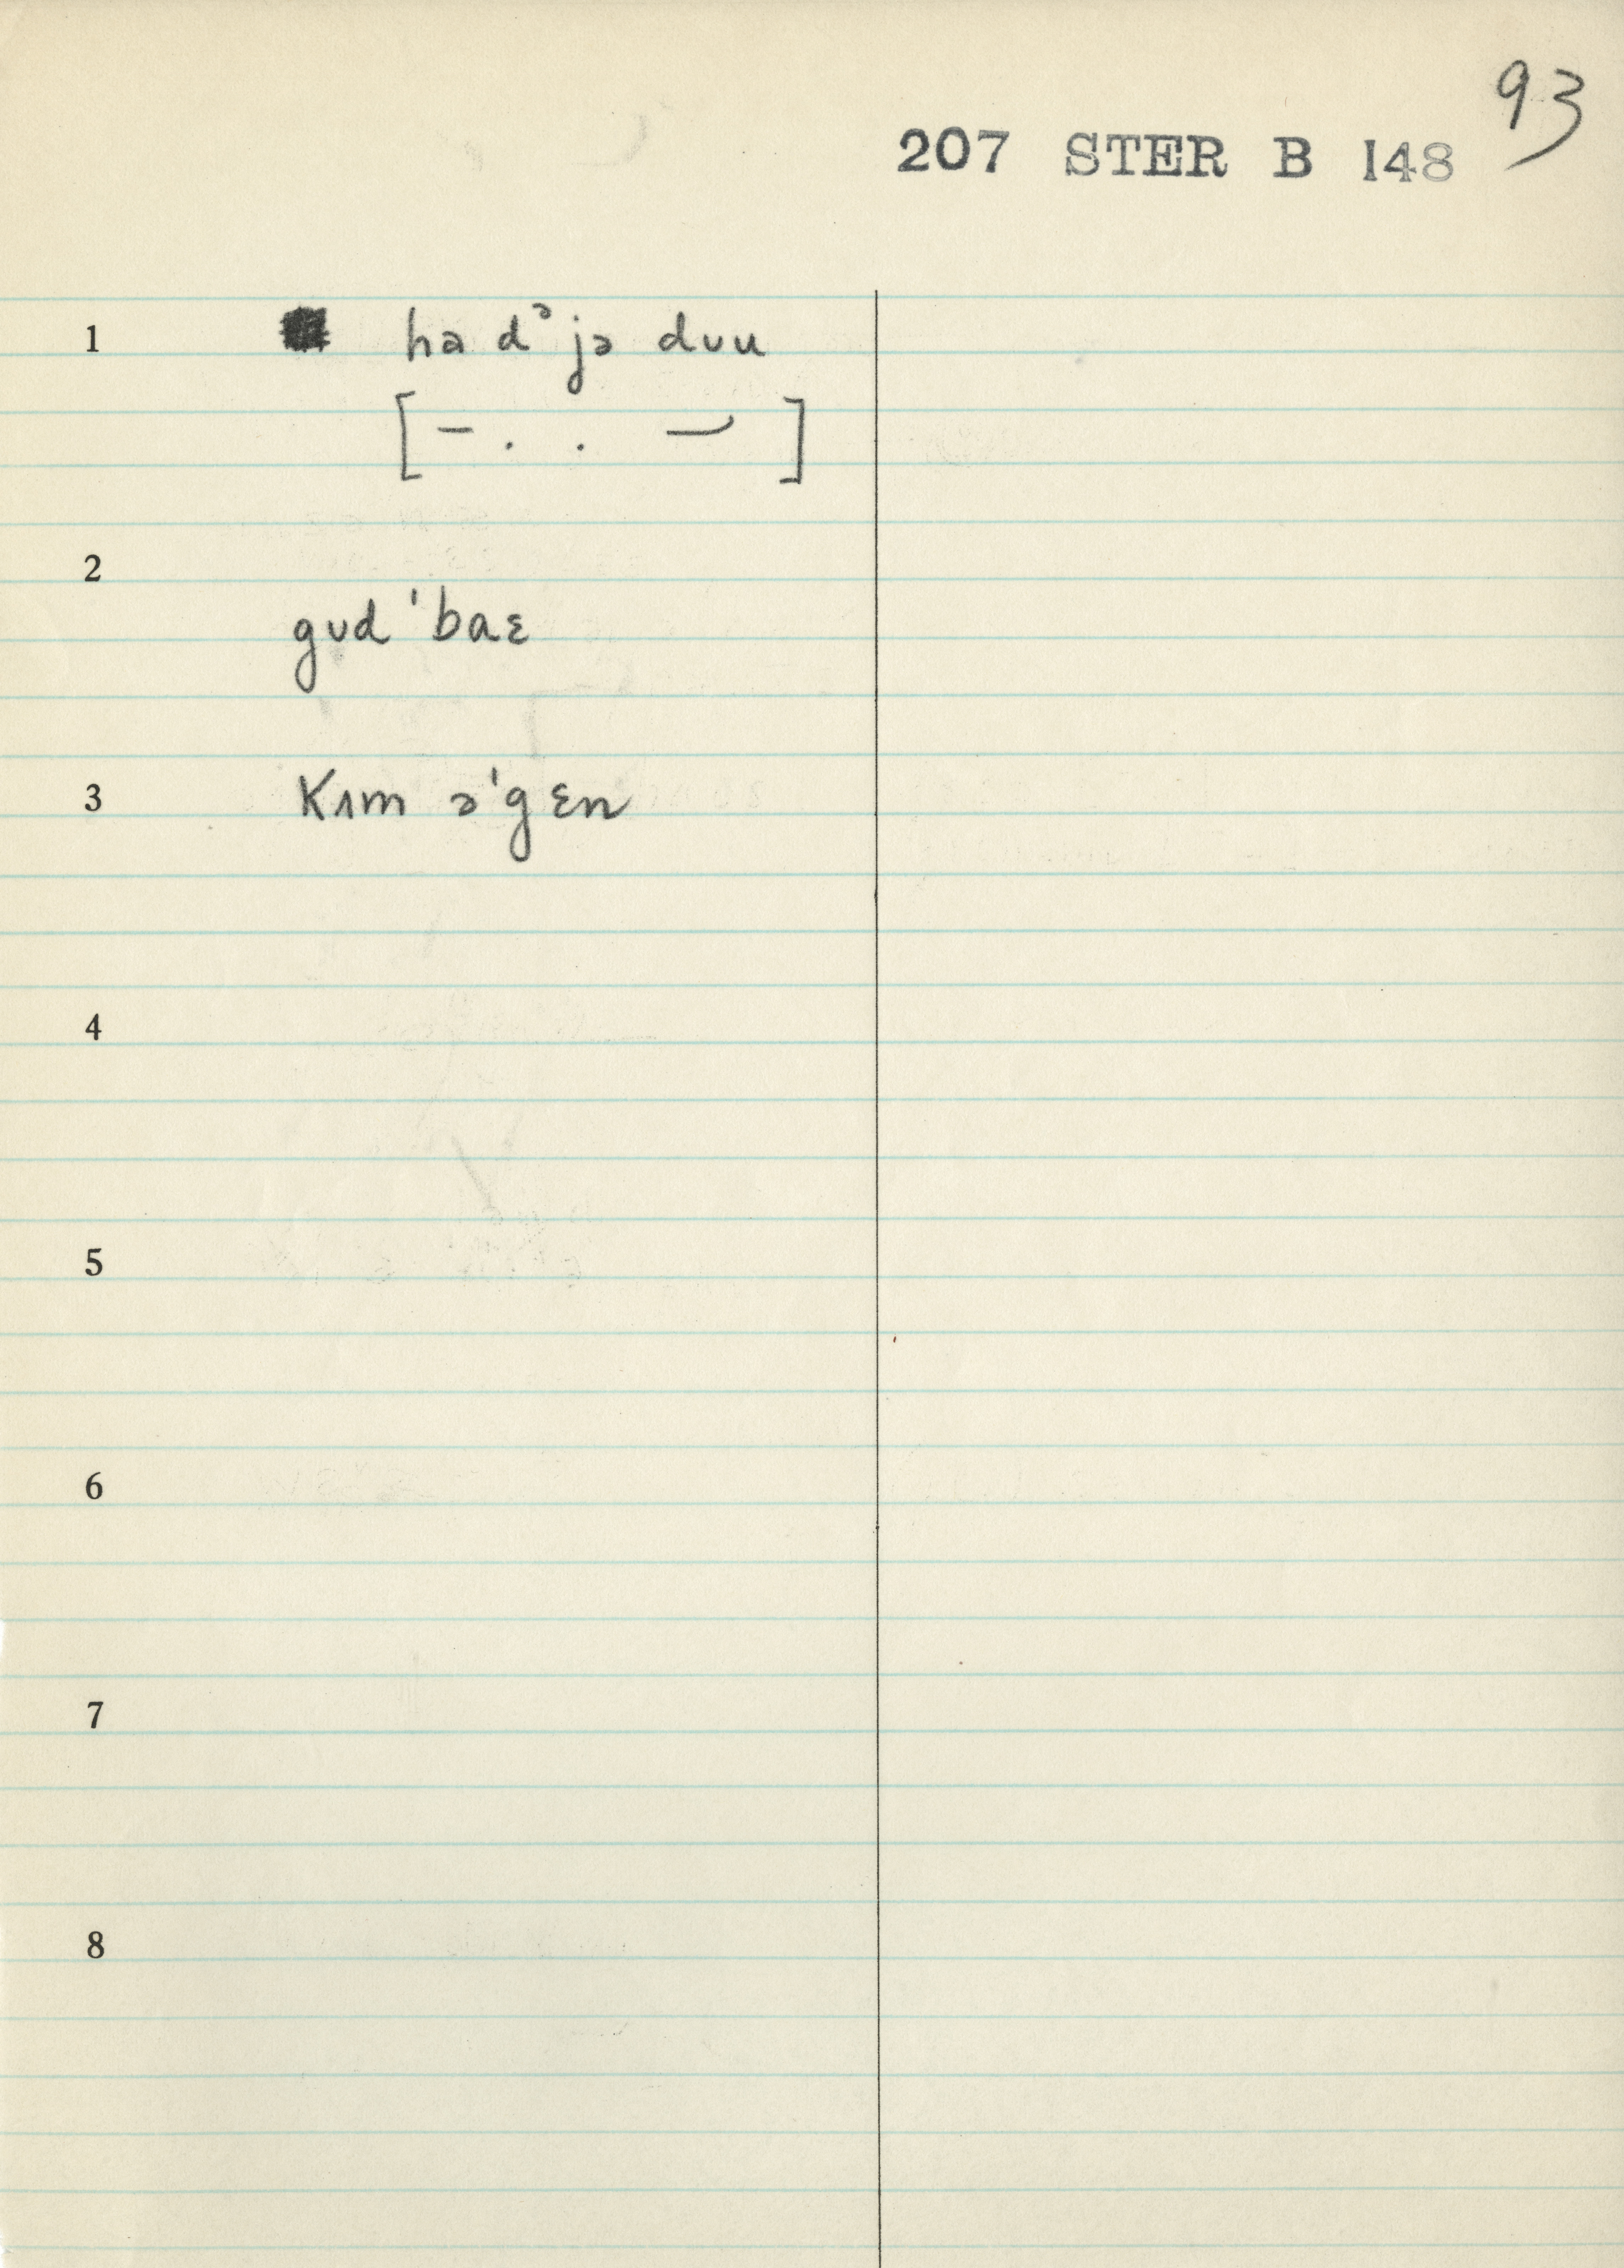 93
207 STER B 148
1 hə dᵊ jə dʊu
[ – . . – ]
2
gʊd ˈbaɛ
3 kʌm əˈgɛn
4
5
6
7
8